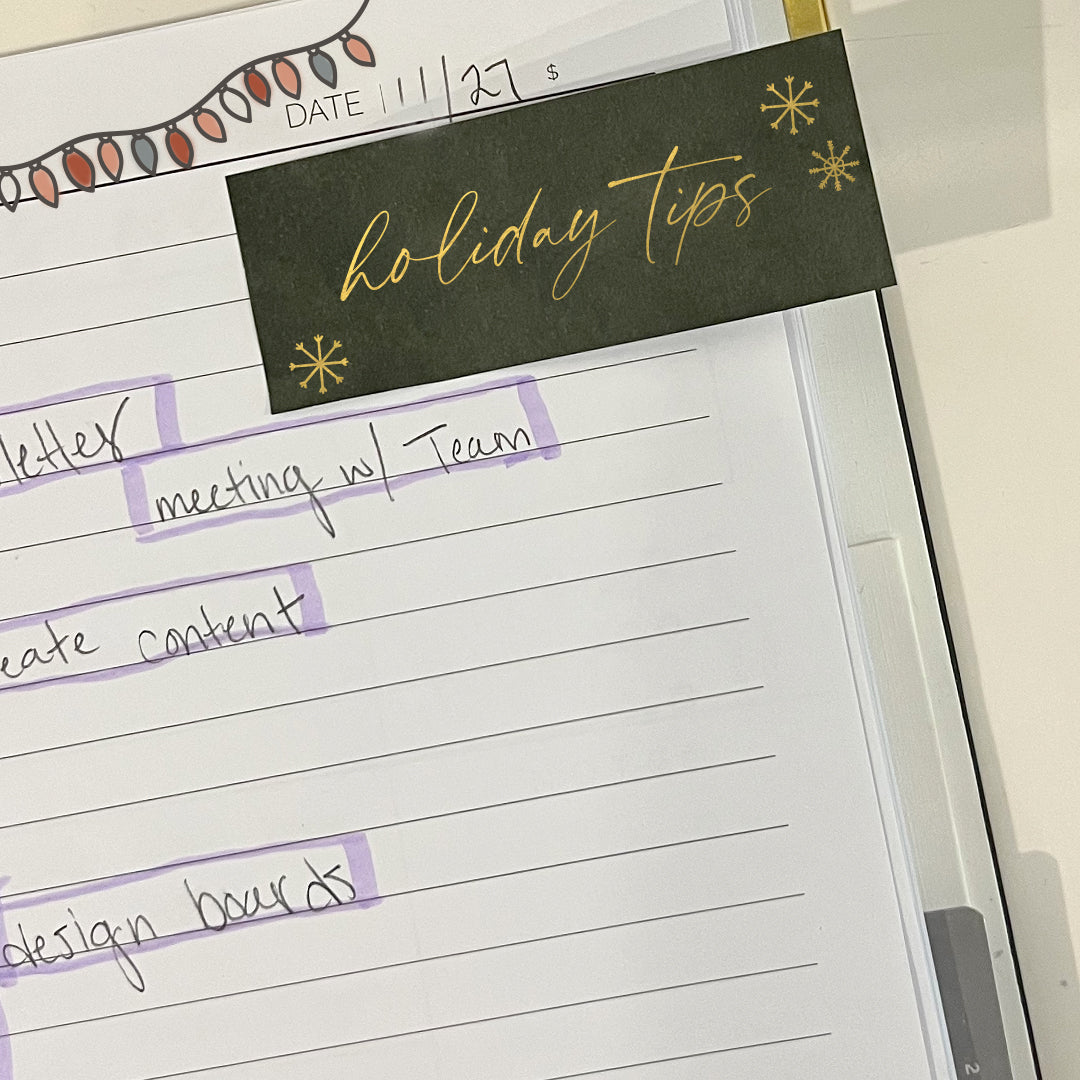 DATE | 11/27 $
holiday tips
letter
meeting w/ Team
eate content
design boards
2